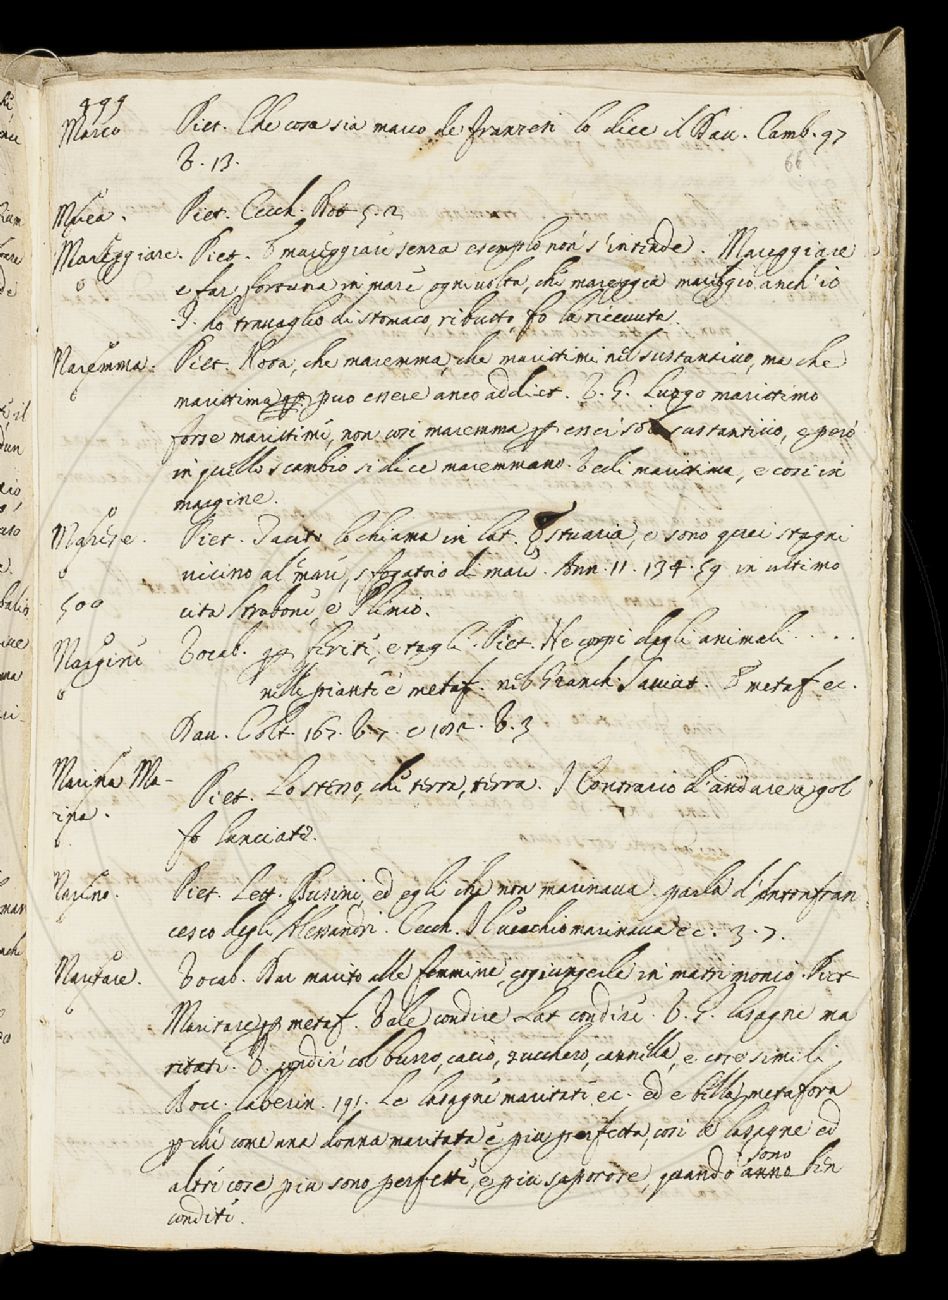 499
Marco Piet. Che cosa sia marco de franzesi lo dice il Dav. Camb. 97
66
V. 13.
Marea. Piet. Cecch. 5. 2
Mareggiare. Piet. V mareggiare senza esemplo non s'intende. Mareggiare
e far fortuna in mare ogni volta, che mareggia mareggio anch'io
ho travaglio di stomaco, ributto, fo la ricevuta.
Maremma. Piet. Nota, che maremma, che marittimi nel sustantivo, ma che
marittima puo essere anco addiet. V. G. Luogo marittimo
forse marittimi, non cosi maremma essei solo sustantivo, e però
in quello scambio si dice maremmano. Vedi marittima, e cosi in
margine.
Marese. Piet. Tacito lo chiama in lat. Estuaria, e sono quei stagni
vicino al mare, sfogatoio di mare. Ann. 11. 134. 59 in ultimo
500 cita Strabone, e Plinio.
Margini Vocab. ferite, e tagli. Piet. Ne corpi degli animali . . . .
nelle piante è metaf. nel Granch. Salviat. metaf ec.
Dav. Colt. 167. V. 7. e 182. V. 3
Marina Ma-
rina. Piet. Lo stesso, che terra, terra. Contrario d'andare a gol
fo lanciato.
Marino. Piet. Lett. Businj, ed egli che non marinava. parla d'Antonfran
cesco degli Alessandri. Cecch. Il vecchio marinava ec. 3. 7.
Maritare. Vocab. Dar marito alle femmine, congiungerle in matrimonio. Piet
Maritare metaf. Vale condire Lat condire. V. G. lasagne ma
ritate. V. condire col burro, cacio, zucchero, cannella, e cose simili
Bocc. laberin. 191. Le lasagne maritate ec. ed e bella metafora
perche come una donna maritata è piu perfetta, cosi le lasagne ed
altre cose piu sono perfette, e piu saporose, quando sono ben
condite.